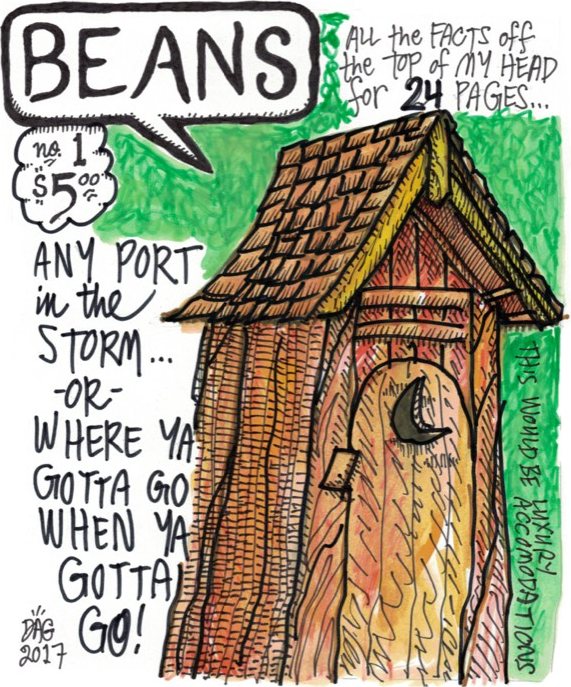 BEANS
ALL the FACTS off
the TOP of MY HEAD
for 24 PAGES...
no. 1
$5.00
ANY PORT
in the
STORM...
-OR-
WHERE YA
GOTTA GO
WHEN YA
GOTTA
GO!
THIS WOULD BE LUXURY
ACCOMODATIONS
DAG
2017